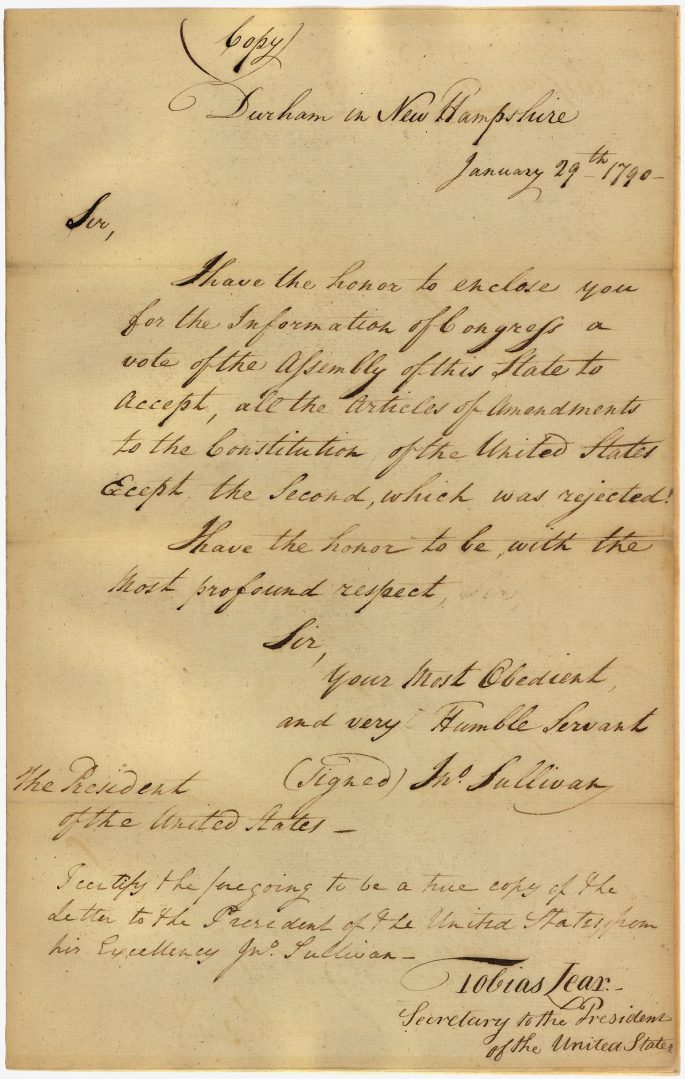 (Copy)
Durham in New Hampshire
January 29th 1790-
Sir,
I have the honor to enclose you
for the Information of Congress a
vote of the Assembly of this State to
Accept, all the Articles of Amendments
to the Constitution of the United States
Ecept the Second, which was rejected!
I have the honor to be, with the
Most profound respect,
Sir,
Your Most Obedient,
and very Humble Servant
(Signed) Jno. Sullivan
The President
of the United States -
I certify the foregoing to be a true copy of the
Letter to the President of the United States, from
his Excellency Jno. Sullivan -
Tobias Lear -
Secretary to the President
of the United States